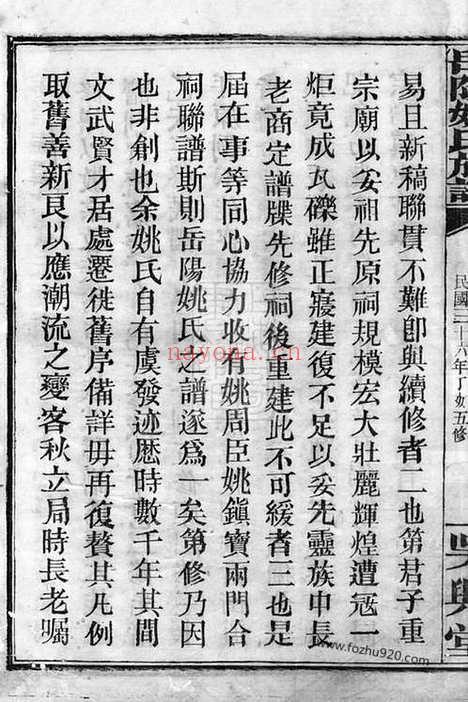 岳陽姚氏族譜
民國三十六年
五修
吳興堂
易且新稿聯貫不難卽與續修者二也第君子重
宗廟以妥祖先原祠規模宏大壯麗輝煌遭寇一
炬竟成瓦礫雖正寢建復不足以妥先靈族中長
老商定譜牒先修祠後重建此不可緩者三也是
屆在事等同心協力收有姚周臣姚鎭寶兩門合
祠聯譜斯則岳陽姚氏之譜遂爲一矣第修乃因
也非創也余姚氏自有虞發迹歴時數千年其間
文武賢才居處遷徙舊序備詳毋再復贅其凡例
取舊善新良以應潮流之變客秋立局時長老囑
nayona.cn
www.fozhu920.com